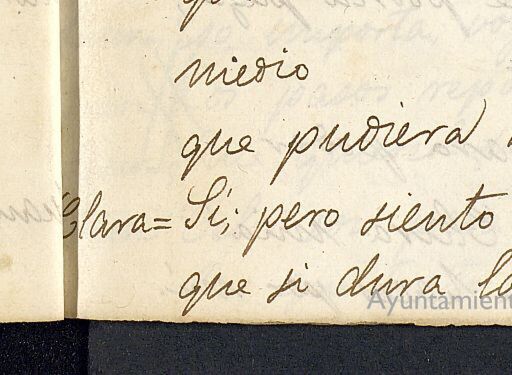 medio
que pudiera
Clara= Sí; pero siento
que si dura la
Ayuntamient